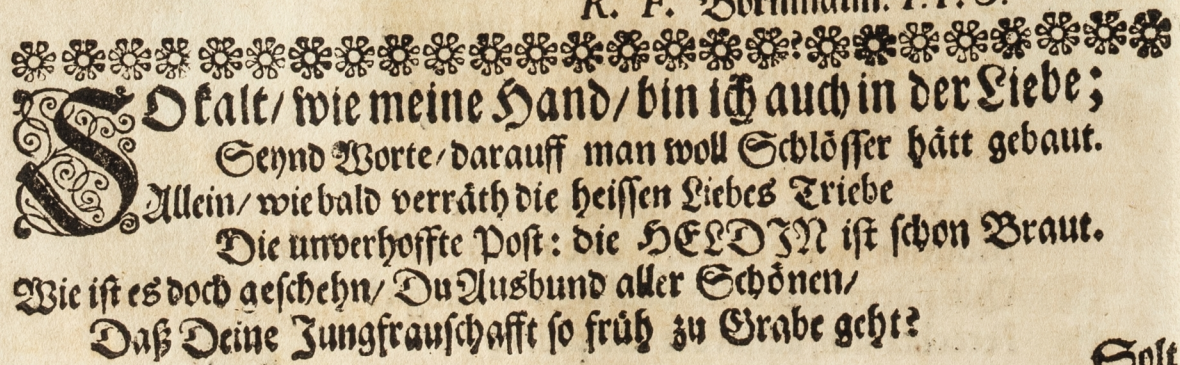 K. F. Bornmann. P. P. S.
SO kalt/ wie meine Hand/ bin ich auch in der Liebe;
Seynd Worte/ darauff man woll Schlösser hätt gebaut.
Allein/ wie bald verräth die heissen Liebes Triebe
Die unverhoffte Post: die HELDJN ist schon Braut.
Wie ist es doch geschehn/ Du Ausbund aller Schönen/
Daß Deine Jungfrauschafft so früh zu Grabe geht?
Solt